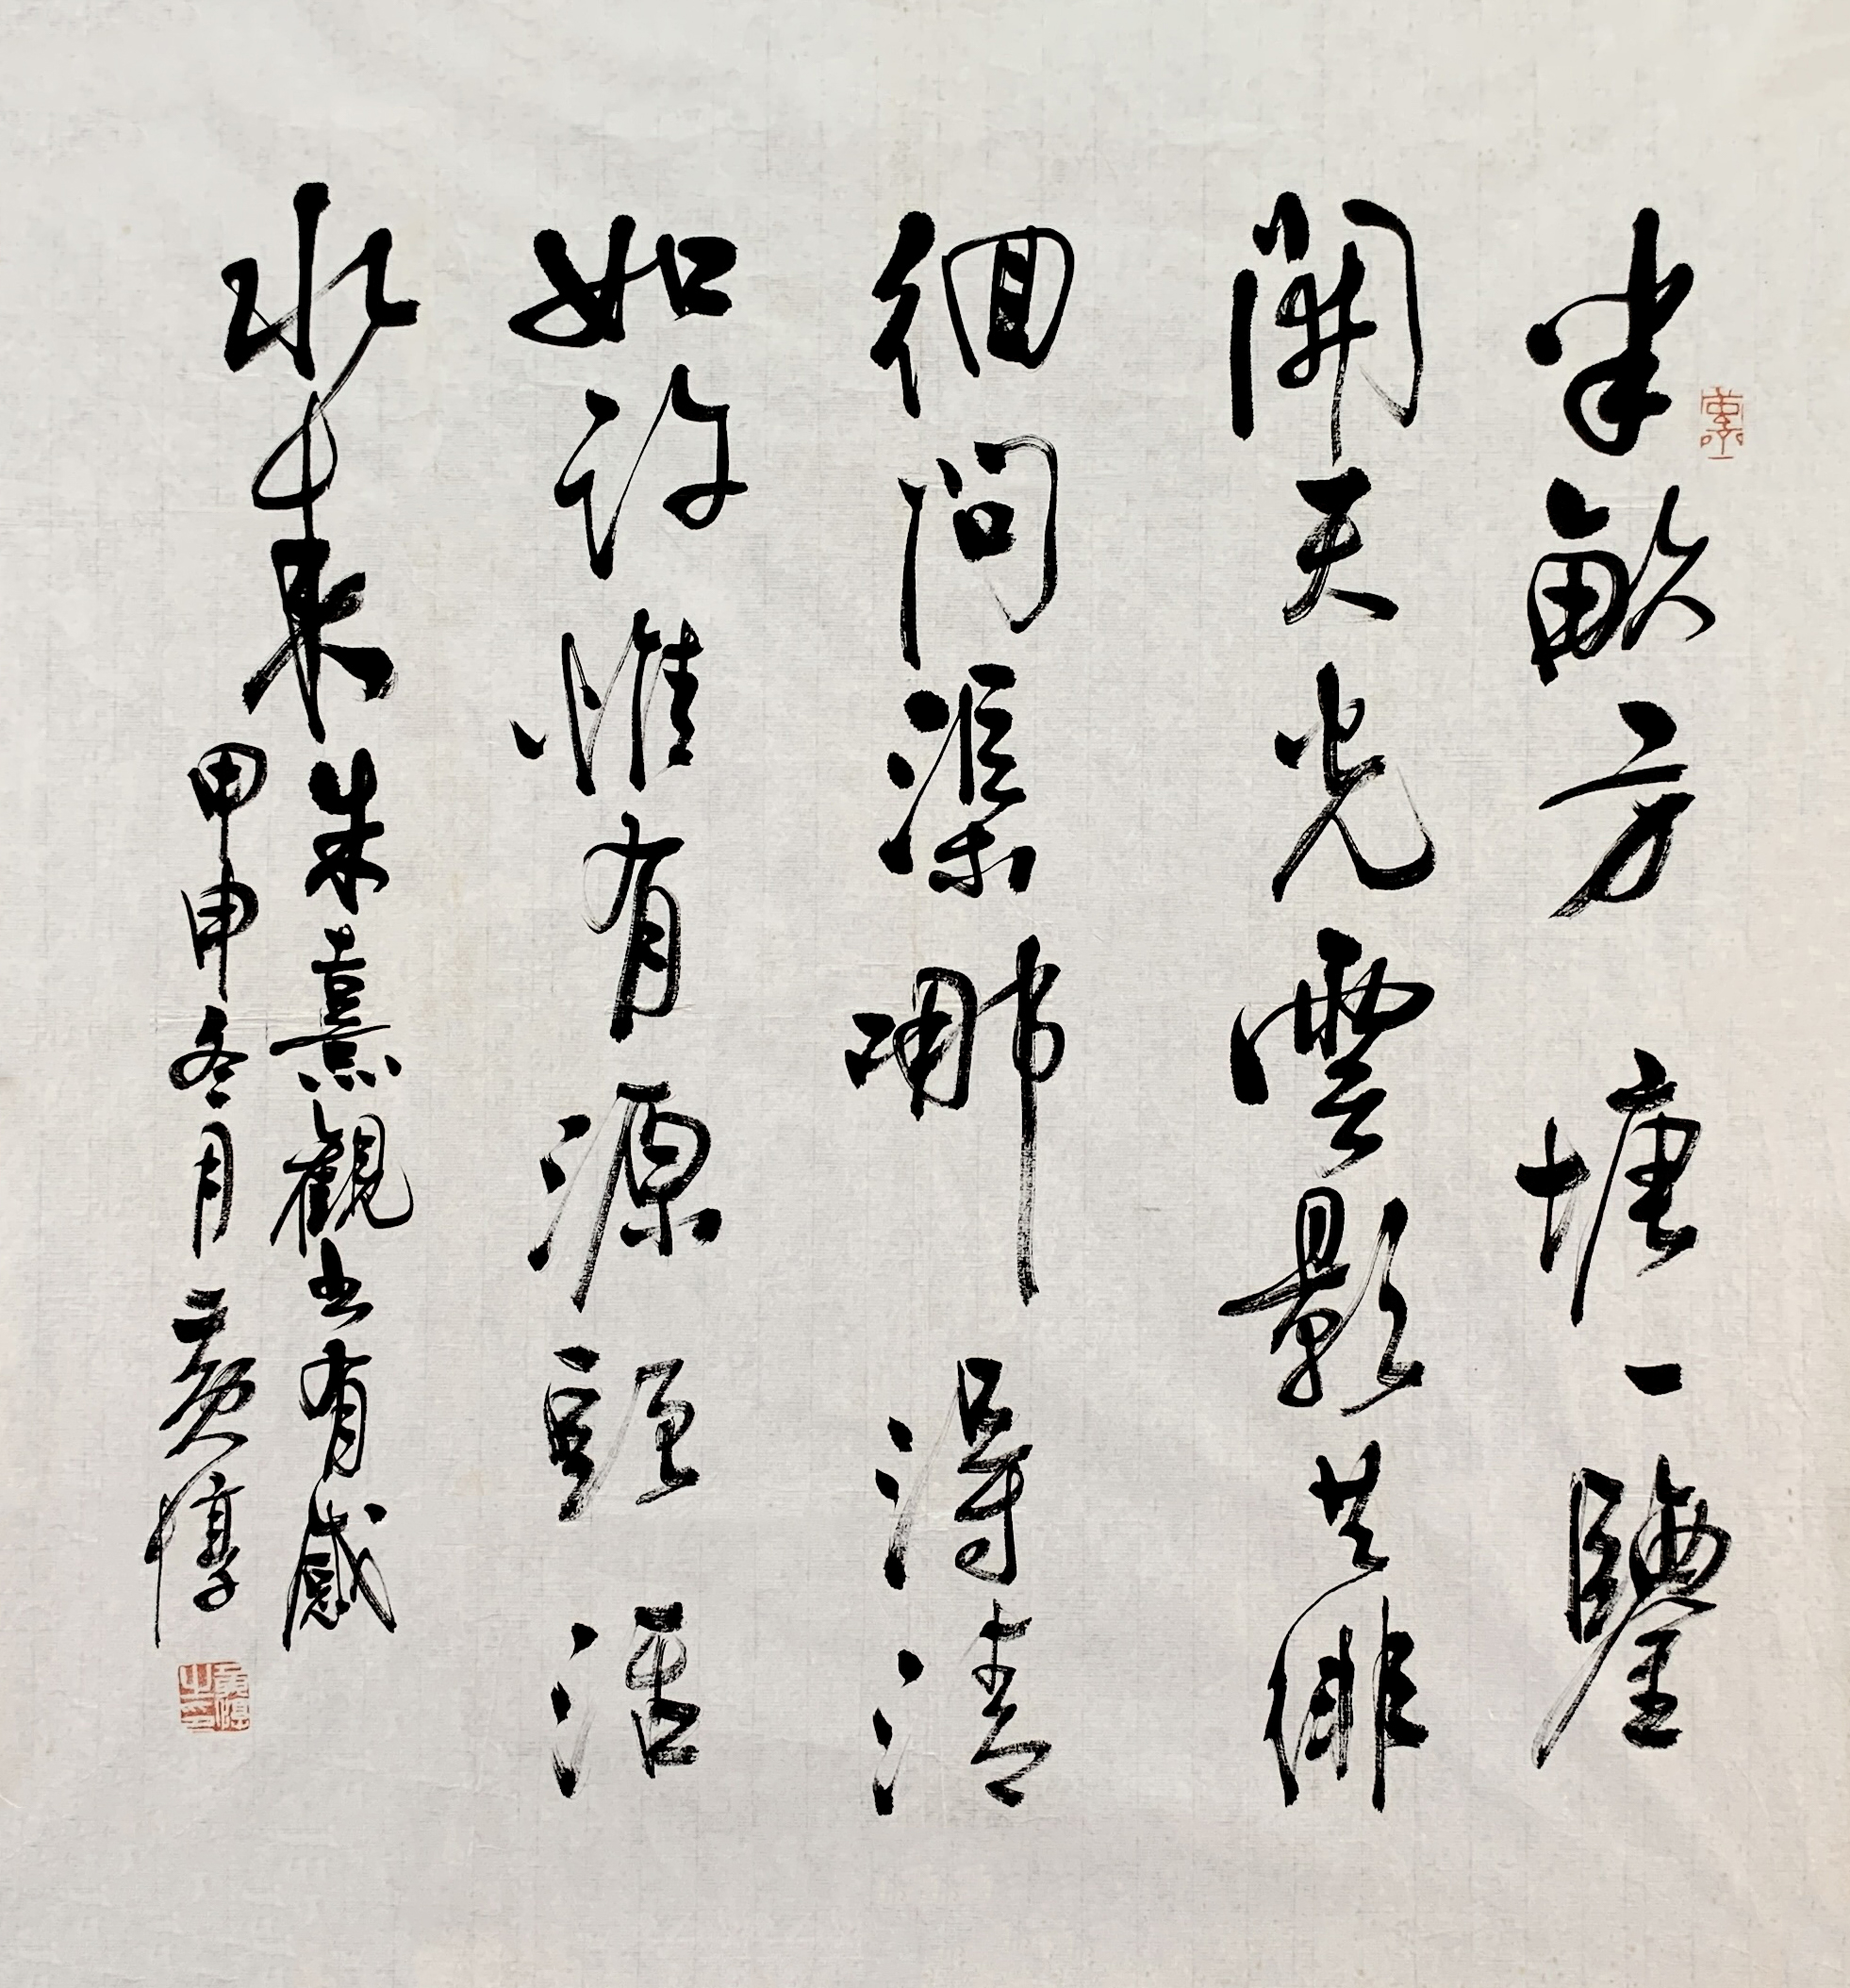 半畝方塘一鑒
開天光雲影共徘
徊問渠哪得清
如許惟有源頭活
水來朱熹觀書有感
甲申冬月黃惇